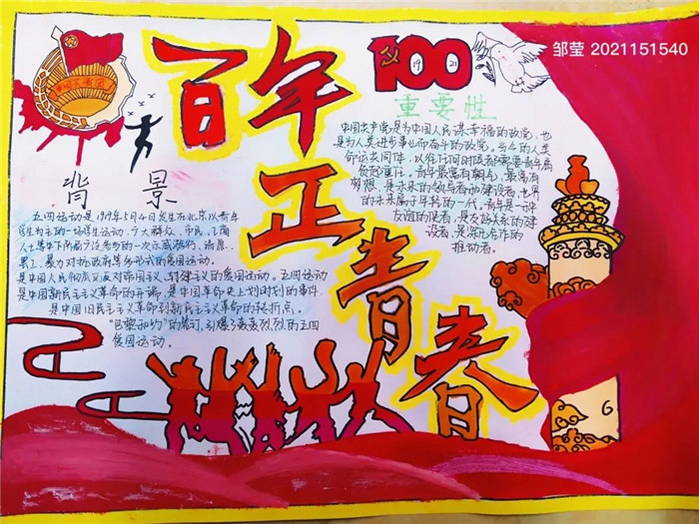 百年正青春
100
19 21
邹莹 2021151540
重要性
中国共产党是为中国人民谋幸福的政党,也
是为人类进步事业而奋斗的政党。当今的人类
命运共同体,以往任何时候都需要青年肩
负起重任。青年最富有朝气、最富有
梦想,是未来的领导者和建设者,世界
的未来属于年轻的一代,青年是一座
友谊的使者,是友好关系的建
设者,是深化合作的
推动者。
背景
五四运动是1919年5月4日发生在北京以青年
学生为主的一场学生运动,广大群众、市民、工商
人士等中下阶层共同参与的一次示威游行、请愿、
罢工、暴力对抗政府等多形式的爱国运动。
是中国人民彻底的反对帝国主义、封建主义的爱国运动。五四运动
是中国新民主主义革命的开端,是中国革命史上划时代的事件
是中国旧民主主义革命到新民主主义革命的转折点。
"巴黎和约"的签订,引爆了轰轰烈烈的五四
爱国运动。